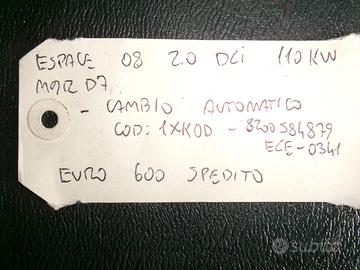 ESPACE 08 2.0 DCI 110 KW
M9R D7
- CAMBIO AUTOMATICO
COD: 1XK0D - 8200584879
ECE-0341
EURO 600 SPEDITO
subito